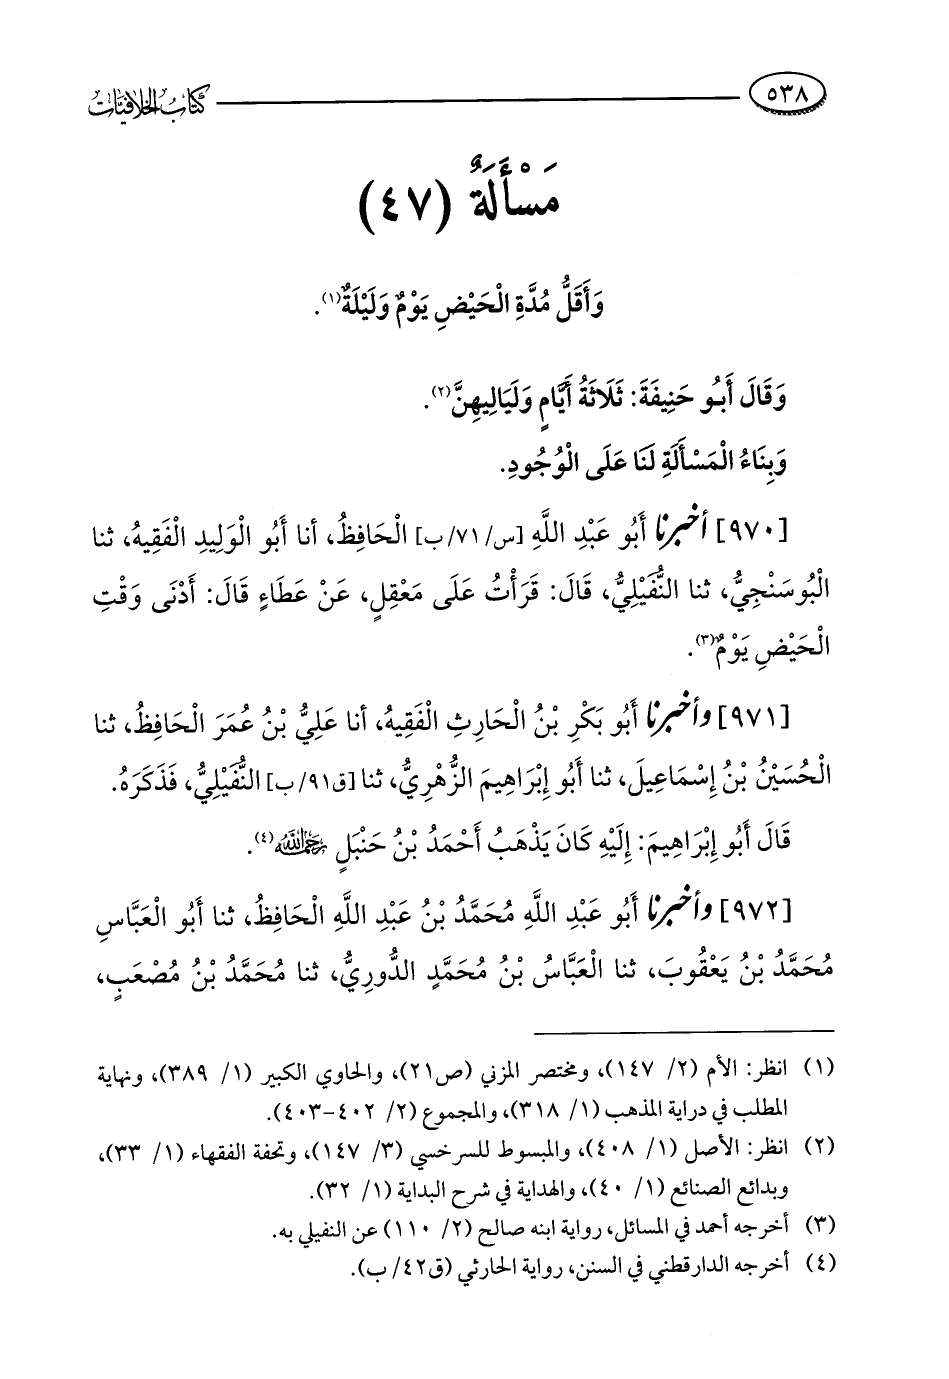 ٥٣٨ كتاب الخلافيات
مَسْأَلَةٌ (٤٧)
وَأَقَلُّ مُدَّةِ الْحَيْضِ يَوْمٌ وَلَيْلَةٌ(١).
وَقَالَ أَبُو حَنِيفَةَ: ثَلَاثَةُ أَيَّامٍ وَلَيَالِيهِنَّ(٢).
وَبِنَاءُ الْمَسْأَلَةِ لَنَا عَلَى الْوُجُودِ.
[٩٧٠] أخبرنا أَبُو عَبْدِ اللَّهِ [س/٧١/ب] الْحَافِظُ، أنا أَبُو الْوَلِيدِ الْفَقِيهُ، ثنا
الْبُوسَنْجِيُّ، ثنا النُّفَيْلِيُّ، قَالَ: قَرَأْتُ عَلَى مَعْقِلٍ، عَنْ عَطَاءٍ قَالَ: أَدْنَى وَقْتِ
الْحَيْضِ يَوْمٌ(٣).
[٩٧١] وأخبرنا أَبُو بَكْرِ بْنُ الْحَارِثِ الْفَقِيهُ، أنا عَلِيُّ بْنُ عُمَرَ الْحَافِظُ، ثنا
الْحُسَيْنُ بْنُ إِسْمَاعِيلَ، ثنا أَبُو إِبْرَاهِيمَ الزُّهْرِيُّ، ثنا [ق٩١/ب] النُّفَيْلِيُّ، فَذَكَرَهُ.
قَالَ أَبُو إِبْرَاهِيمَ: إِلَيْهِ كَانَ يَذْهَبُ أَحْمَدُ بْنُ حَنْبَلٍ رحمه الله(٤).
[٩٧٢] وأخبرنا أَبُو عَبْدِ اللَّهِ مُحَمَّدُ بْنُ عَبْدِ اللَّهِ الْحَافِظُ، ثنا أَبُو الْعَبَّاسِ
مُحَمَّدُ بْنُ يَعْقُوبَ، ثنا الْعَبَّاسُ بْنُ مُحَمَّدٍ الدُّورِيُّ، ثنا مُحَمَّدُ بْنُ مُصْعَبٍ،
(١) انظر: الأم (٢/ ١٤٧)، ومختصر المزني (ص٢١)، والحاوي الكبير (١/ ٣٨٩)، ونهاية
المطلب في دراية المذهب (١/ ٣١٨)، والمجموع (٢/ ٤٠٢-٤٠٣).
(٢) انظر: الأصل (١/ ٤٠٨)، والمبسوط للسرخسي (٣/ ١٤٧)، وتحفة الفقهاء (١/ ٣٣)،
وبدائع الصنائع (١/ ٤٠)، والهداية في شرح البداية (١/ ٣٢).
(٣) أخرجه أحمد في المسائل، رواية ابنه صالح (٢/ ١١٠) عن النفيلي به.
(٤) أخرجه الدارقطني في السنن، رواية الحارثي (ق٤٢/ ب).